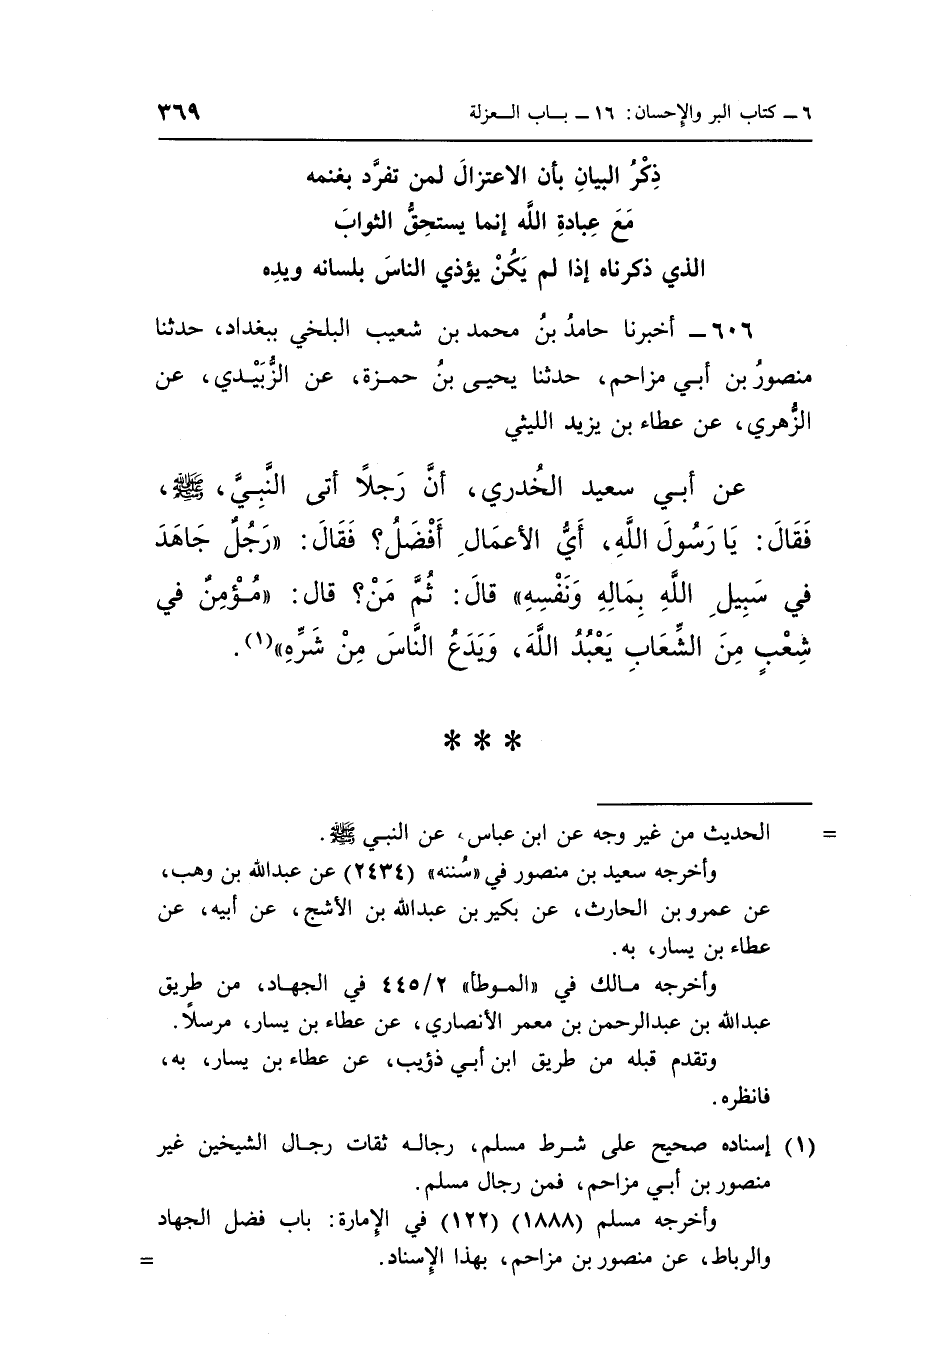 ٦ ـ كتاب البر والإحسان: ١٦ ـ بـاب العـزلة ٣٦٩
ذِكْرُ البيانِ بأن الاعتزالَ لمن تفرَّد بغنمه
مَعَ عِبادةِ اللَّه إنما يستحِقُّ الثوابَ
الذي ذكرناه إذا لم يَكُنْ يؤذي الناسَ بلسانه ويدِه
٦٠٦ ـ أخبرنا حامدُ بنُ محمد بن شعيب البلخي ببغداد، حدثنا
منصورُ بن أبي مزاحم، حدثنا يحيى بنُ حمزة، عن الزُّبَيْدي، عن
الزُّهري، عن عطاء بن يزيد الليثي
عن أبي سعيد الخُدري، أنَّ رَجلاً أتى النَّبِيَّ، ﷺ،
فَقَالَ: يَا رَسُولَ اللَّهِ، أَيُّ الأعمَالِ أَفْضَلُ؟ فقَالَ: «رَجُلٌ جَاهَدَ
في سَبِيلِ اللَّهِ بِمَالِهِ وَنَفْسِهِ» قالَ: ثُمَّ مَنْ؟ قال: «مُؤْمِنٌ في
شِعْبٍ مِنَ الشِّعَابِ يَعْبُدُ اللَّهَ، وَيَدَعُ النَّاسَ مِنْ شَرِّهِ»(١).
* * *
= الحديث من غير وجه عن ابن عباس، عن النبي ﷺ.
وأخرجه سعيد بن منصور في «سُننه» (٢٤٣٤) عن عبدالله بن وهب،
عن عمرو بن الحارث، عن بكير بن عبدالله بن الأشج، عن أبيه، عن
عطاء بن يسار، به.
وأخرجه مالك في «الموطأ» ٤٤٥/٢ في الجهاد، من طريق
عبدالله بن عبدالرحمن بن معمر الأنصاري، عن عطاء بن يسار، مرسلاً.
وتقدم قبله من طريق ابن أبي ذؤيب، عن عطاء بن يسار، به،
فانظره.
(١) إسناده صحيح على شرط مسلم، رجاله ثقات رجال الشيخين غير
منصور بن أبي مزاحم، فمن رجال مسلم.
وأخرجه مسلم (١٨٨٨) (١٢٢) في الإمارة: باب فضل الجهاد
والرباط، عن منصور بن مزاحم، بهذا الإسناد. =